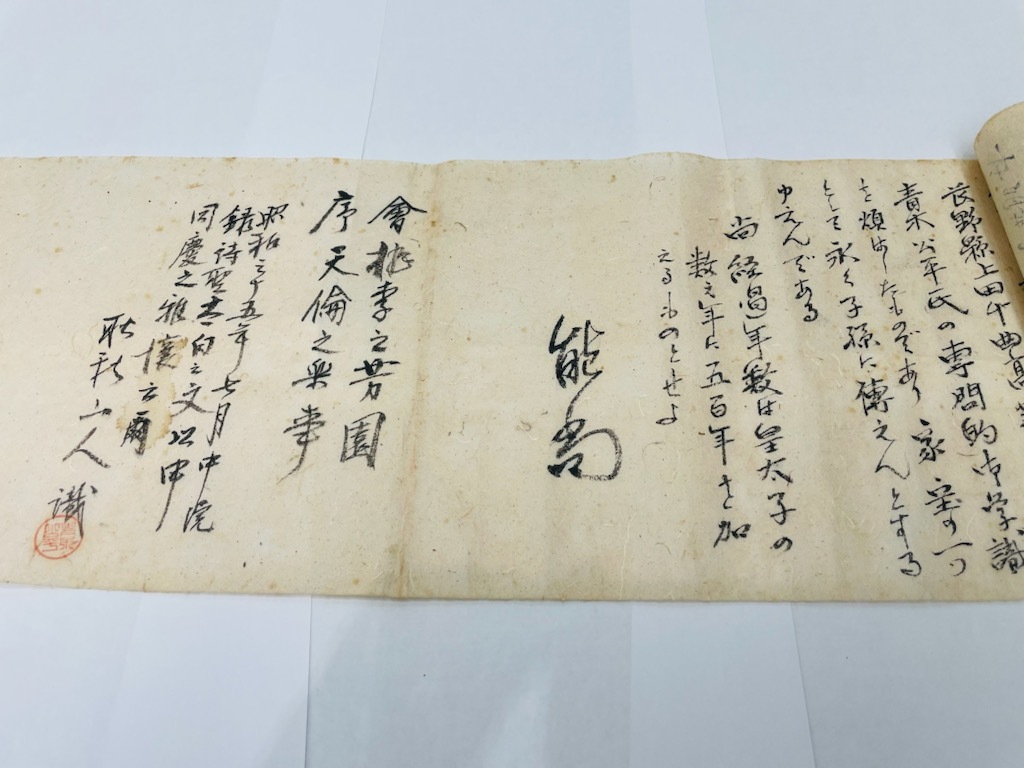 長野縣上田中曲尾
青木公平氏の専問的御学識
を煩はしたものであり家宝の一つ
として永く子孫に傳えんとする
ゆえんである
尚経過年数は皇太子の
数え年に五百年を加
えるものとせよ
能尚
會桃李之芳園
序天倫之楽事
昭和三十五年七月中浣
録詩聖李白之文以申
同慶之雅懐云爾
山人
識